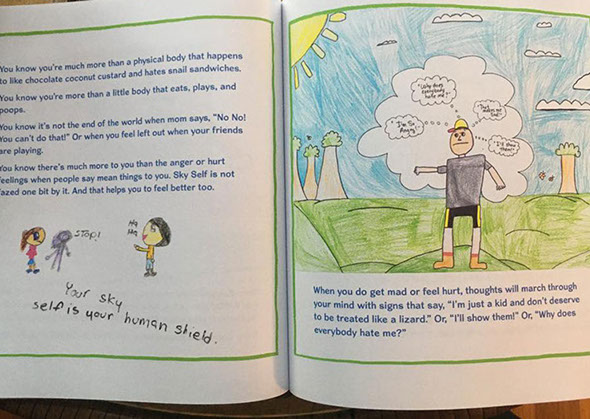 You know you're much more than a physical body that happens
to like chocolate coconut custard and hates snail sandwiches.
You know you're more than a little body that eats, plays, and
poops.
You know it's not the end of the world when mom says, "No No!
You can't do that!" Or when you feel left out when your friends
are playing.
You know there's much more to you than the anger or hurt
feelings when people say mean things to you. Sky Self is not
fazed one bit by it. And that helps you to feel better too.
STOP!
Your sky
self is your human shield.
"Why does
everybody
hate me?"
"I'm So
Angry!"
"I'll show
them!"
When you do get mad or feel hurt, thoughts will march through
your mind with signs that say, "I'm just a kid and don't deserve
to be treated like a lizard." Or, "I'll show them!" Or, "Why does
everybody hate me?"